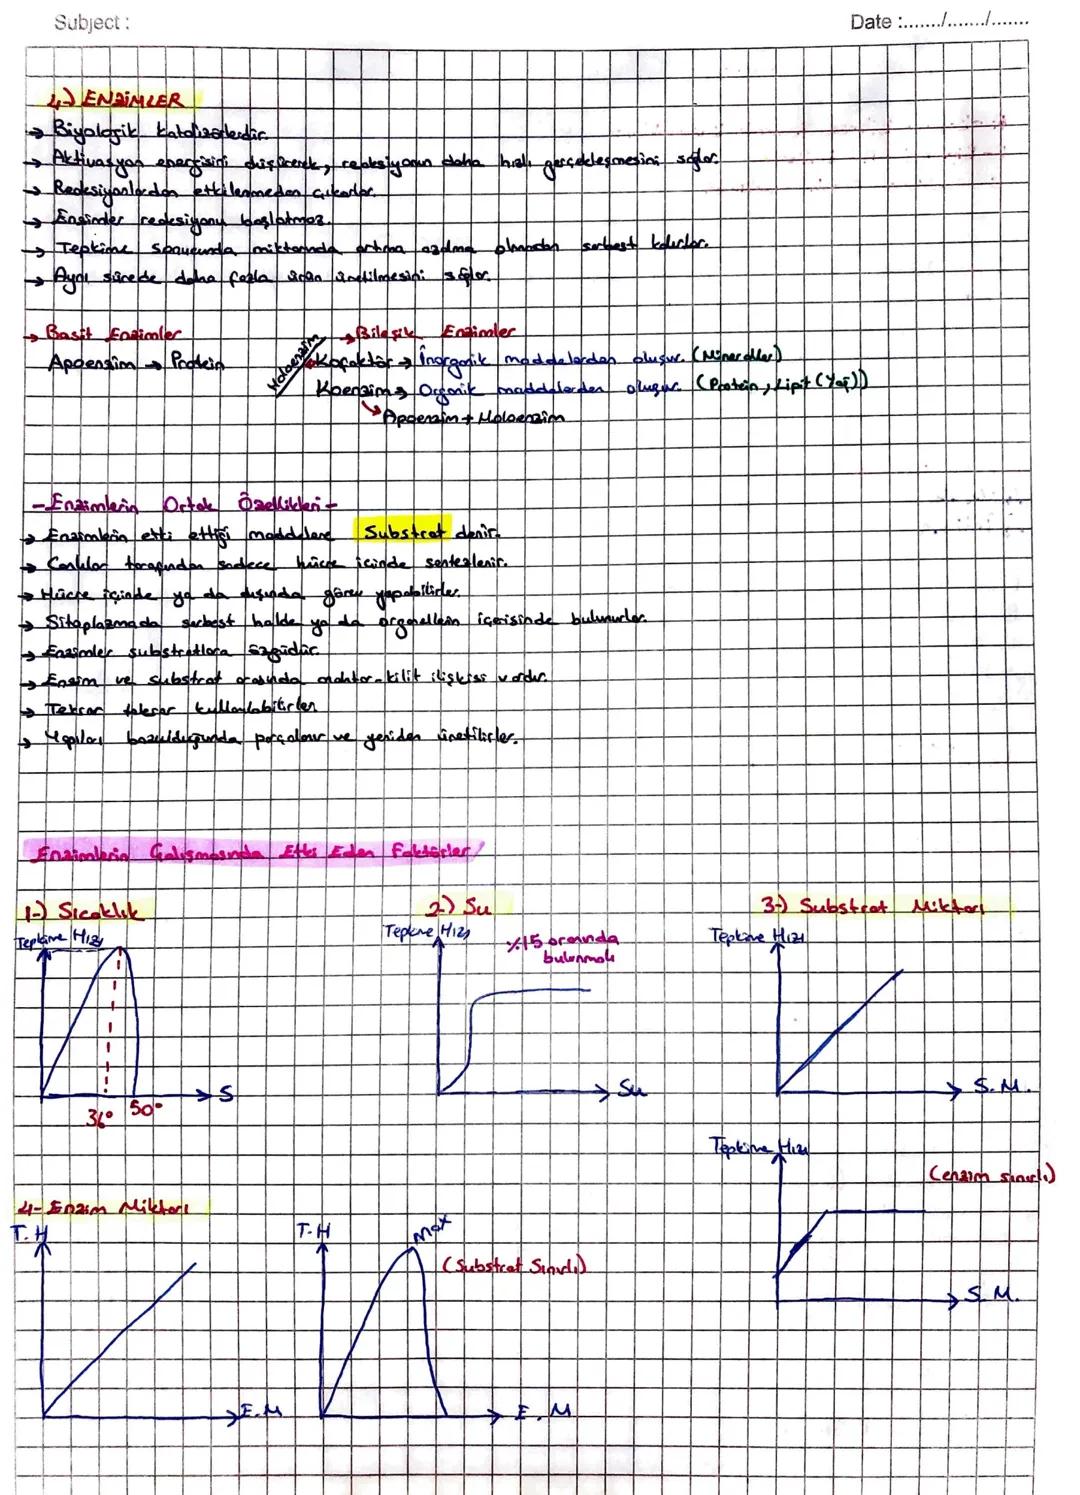 Subject :
Date :......./......./.......
4-) ENZİMLER
→ Biyolojik katalizörlerdir.
→ Aktivasyon enerjisini düşürerek, reaksiyonun daha hızlı gerçekleşmesini sağlar.
→ Reaksiyonlardan etkilenmeden çıkarlar.
→ Enzimler reaksiyonu başlatmaz.
→ Tepkime sonucunda miktarında artma azalma olmadan serbest kalırlar.
→ Aynı sürede daha fazla ürün üretilmesini sağlar.
→ Basit Enzimler
Apoenzim → Protein
→ Bileşik Enzimler
Holoenzim
Kofaktör → İnorganik maddelerden oluşur. (Mineraller)
Koenzim → Organik maddelerden oluşur. (Protein, Lipit (Yağ))
↳ Apoenzim + Holoenzim
- Enzimlerin Ortak Özellikleri -
→ Enzimlerin etki ettiği maddelere Substrat denir.
→ Canlılar tarafından sadece hücre içinde sentezlenir.
→ Hücre içinde ya da dışında görev yapabilirler.
→ Sitoplazmada serbest halde ya da organellerin içerisinde bulunurlar.
→ Enzimler substratlara özgüdür.
→ Enzim ve substrat arasında anahtar-kilit ilişkisi vardır.
→ Tekrar tekrar kullanılabilirler.
→ Yapıları bozulduğunda parçalanır ve yeniden üretilirler.
Enzimlerin Çalışmasında Etki Eden Faktörler/
1-) Sıcaklık
Tepkime Hızı
S
36° 50°
2-) Su
Tepkime Hızı
%15 oranında
bulunmalı
Su
3-) Substrat Miktarı
Tepkime Hızı
S.M.
Tepkime Hızı
(enzim sınırlı)
S.M.
4- Enzim Miktarı
T.H
E.M
T.H
max
(Substrat Sınırlı)
E.M